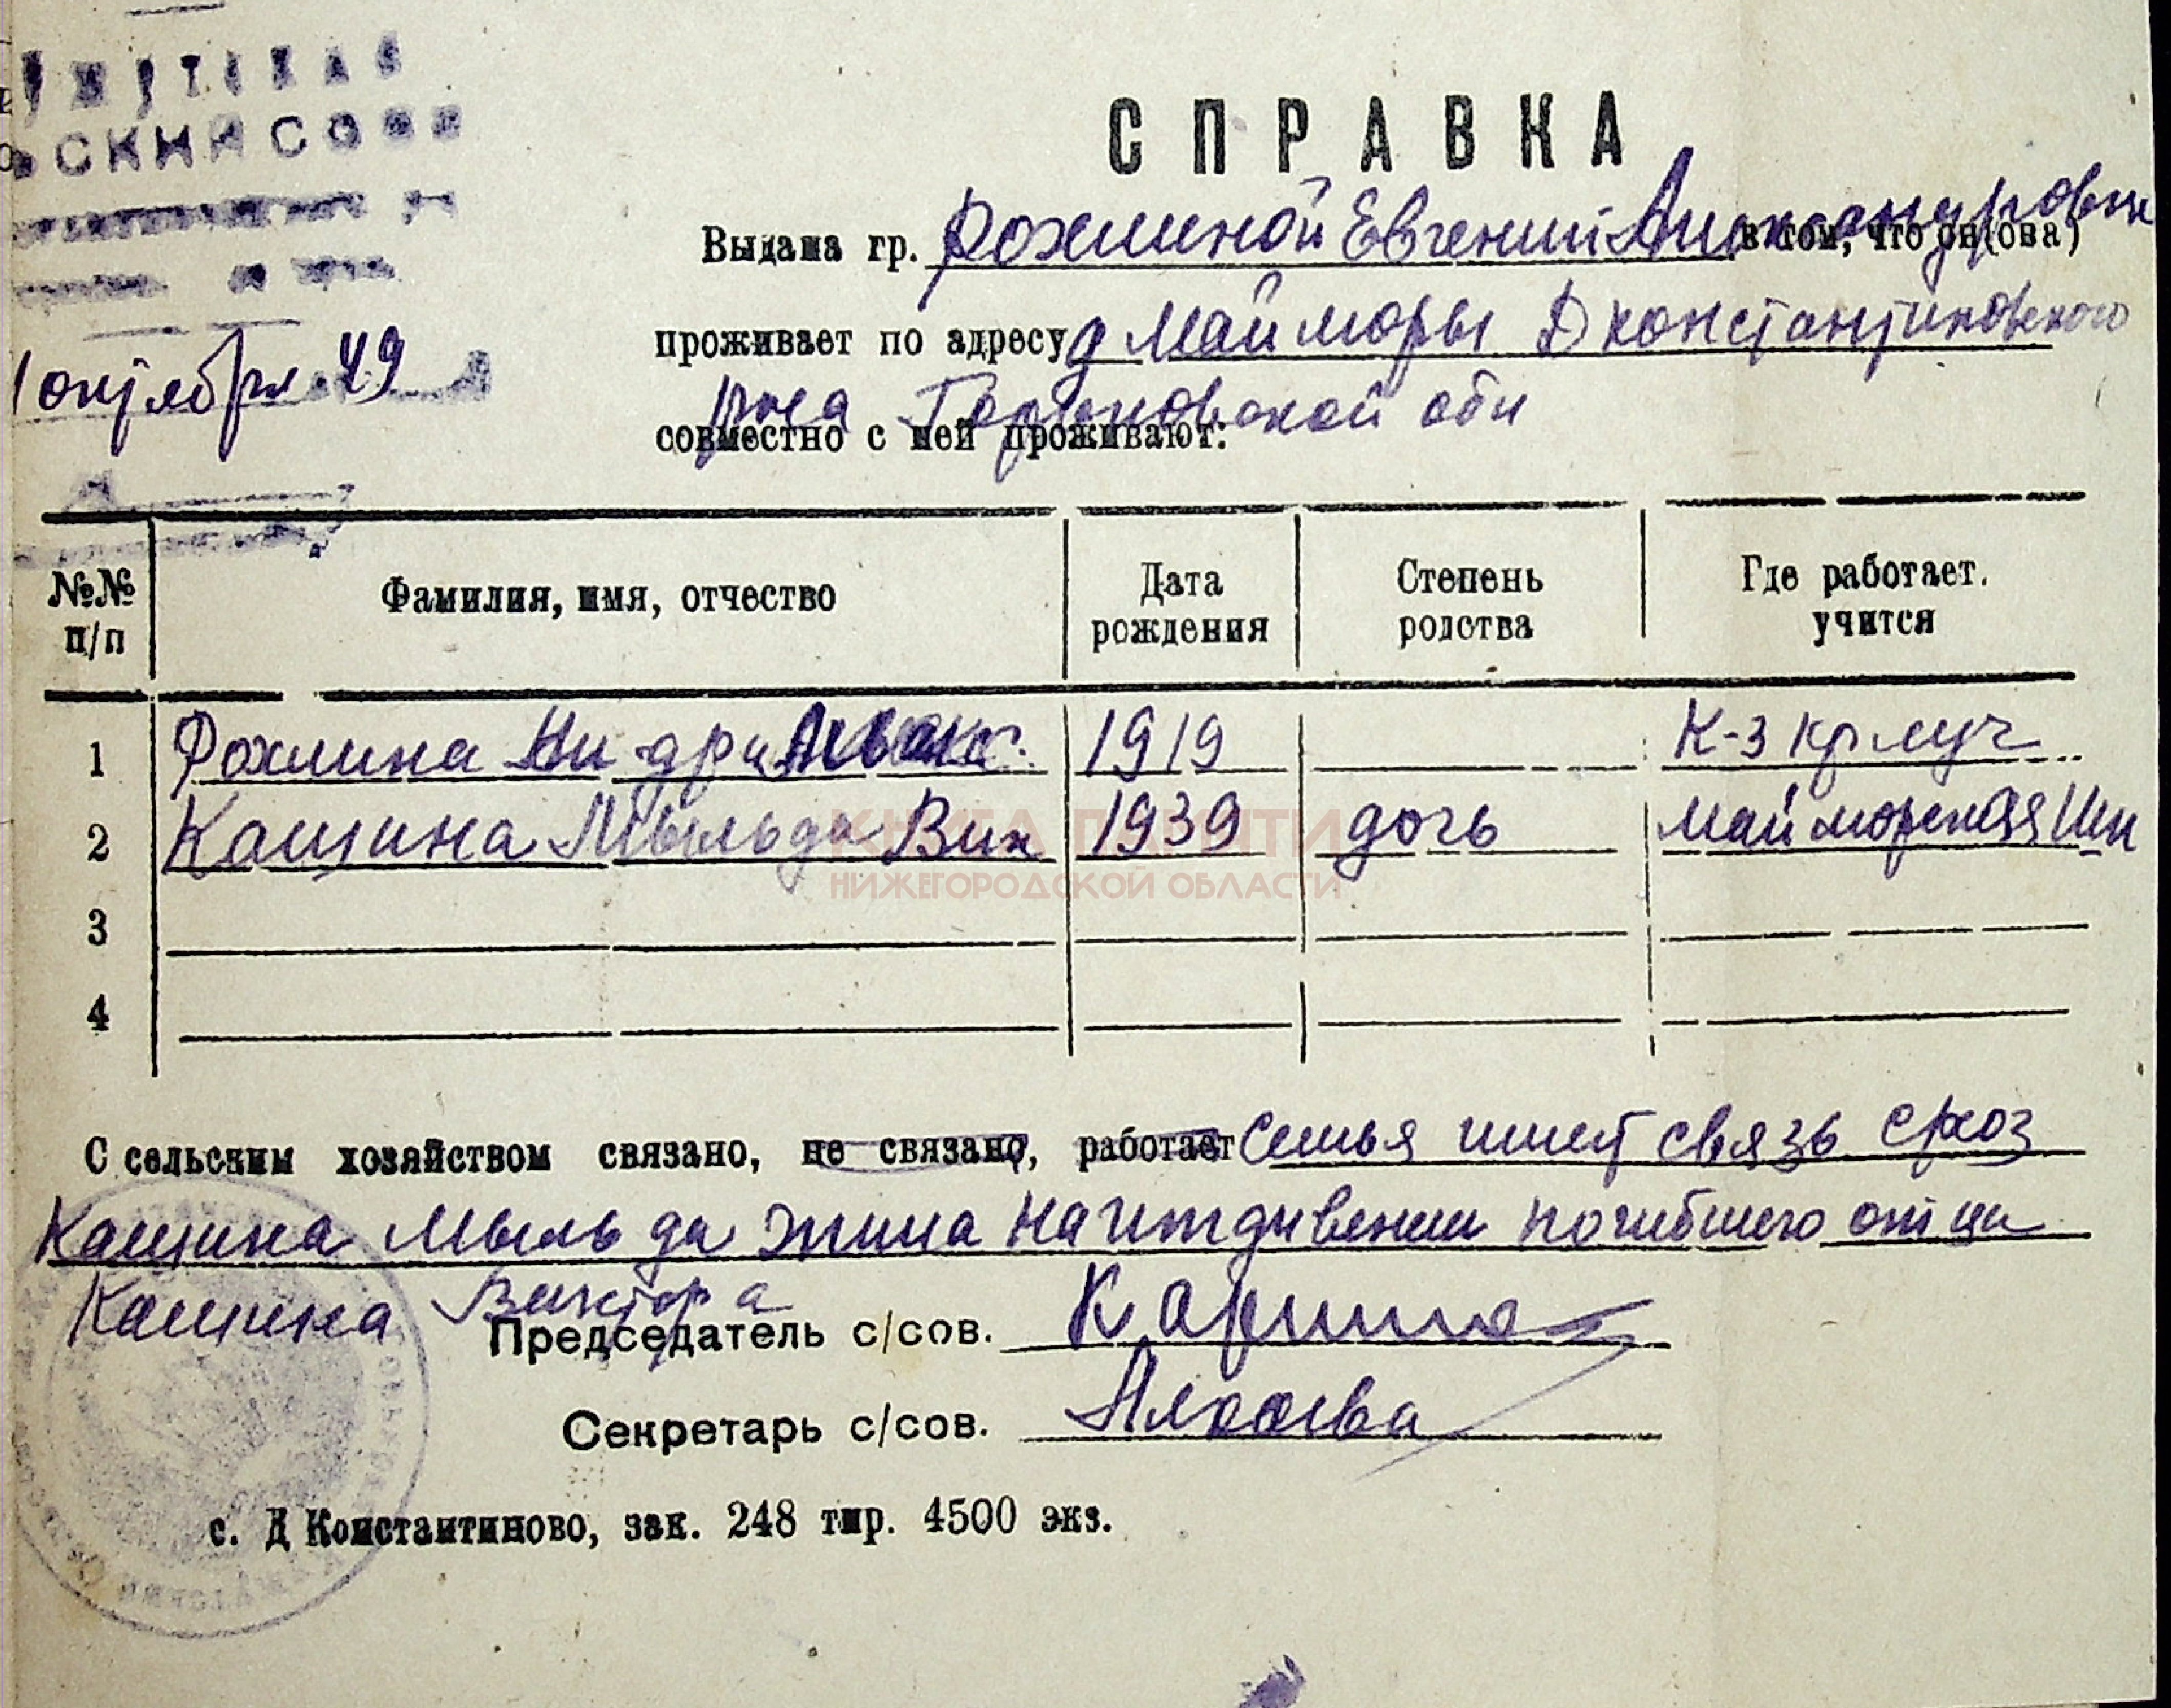 СПРАВКА
Выдана гр. Рохлиной Евгений Александровн в том, что он(она)
проживает по адресу д Майморы Д константиновского
рна Горьковской обл
1 октября 49
совместно с ней проживают:
№№ п/п
Фамилия, имя, отчество
Дата рождения
Степень родства
Где работает. учится
1 Рохлина 1919 К-з кр луч
2 Кащина Мыльда Вик 1939 дочь Майморская Шк
3
4
КНИГА ПАМЯТИ
НИЖЕГОРОДСКОЙ ОБЛАСТИ
С сельским хозяйством связано, не связано, работает Семья имеет связь
Кащина Мыльда жила на иждивении погибшего отца
Кащина Виктора
Председатель с/сов.
Секретарь с/сов.
с. Д Константиново, зак. 248 тир. 4500 экз.